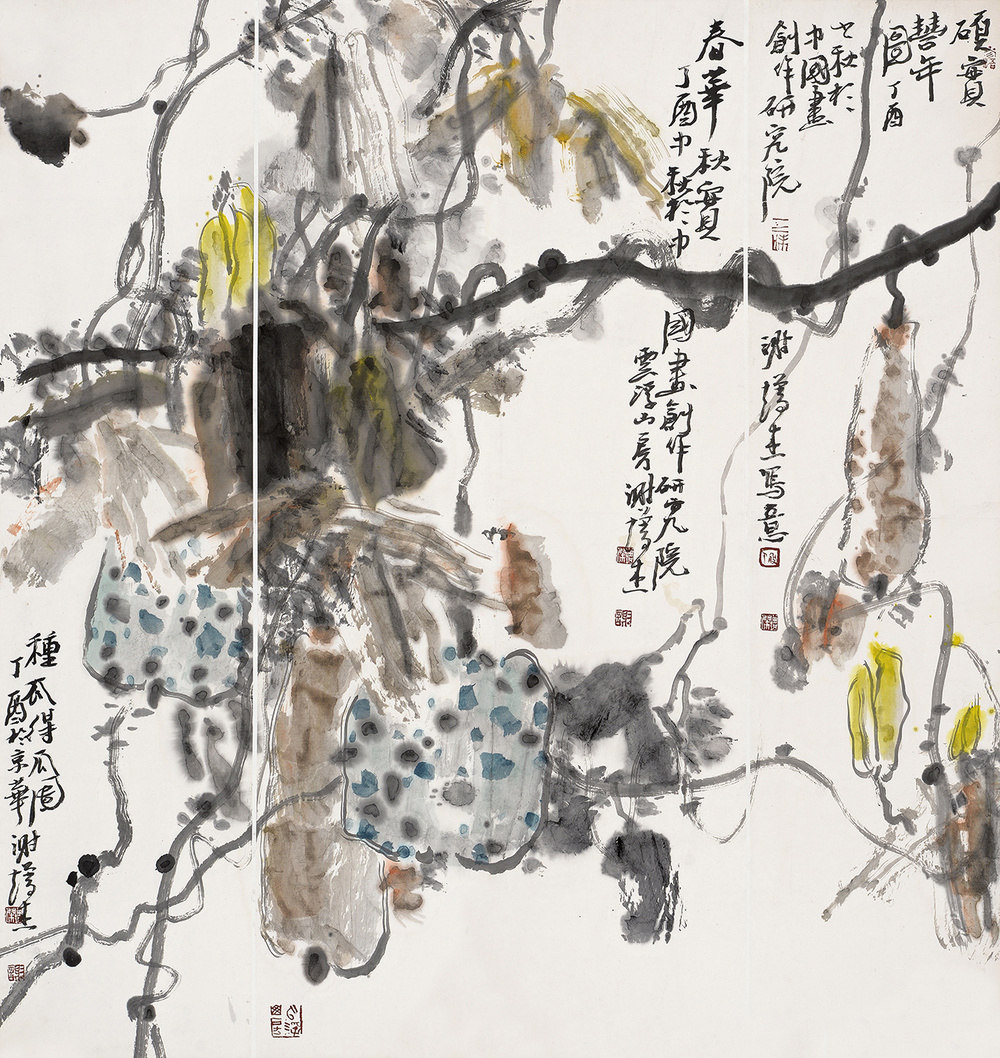 碩實
豐年
圖丁酉
之秋於
中國畫
創作研究院
謝增杰寫意
春華秋實
丁酉中秋於中
國畫創作研究院
雲浮山房謝增杰
種瓜得瓜圖
丁酉於京華謝增杰